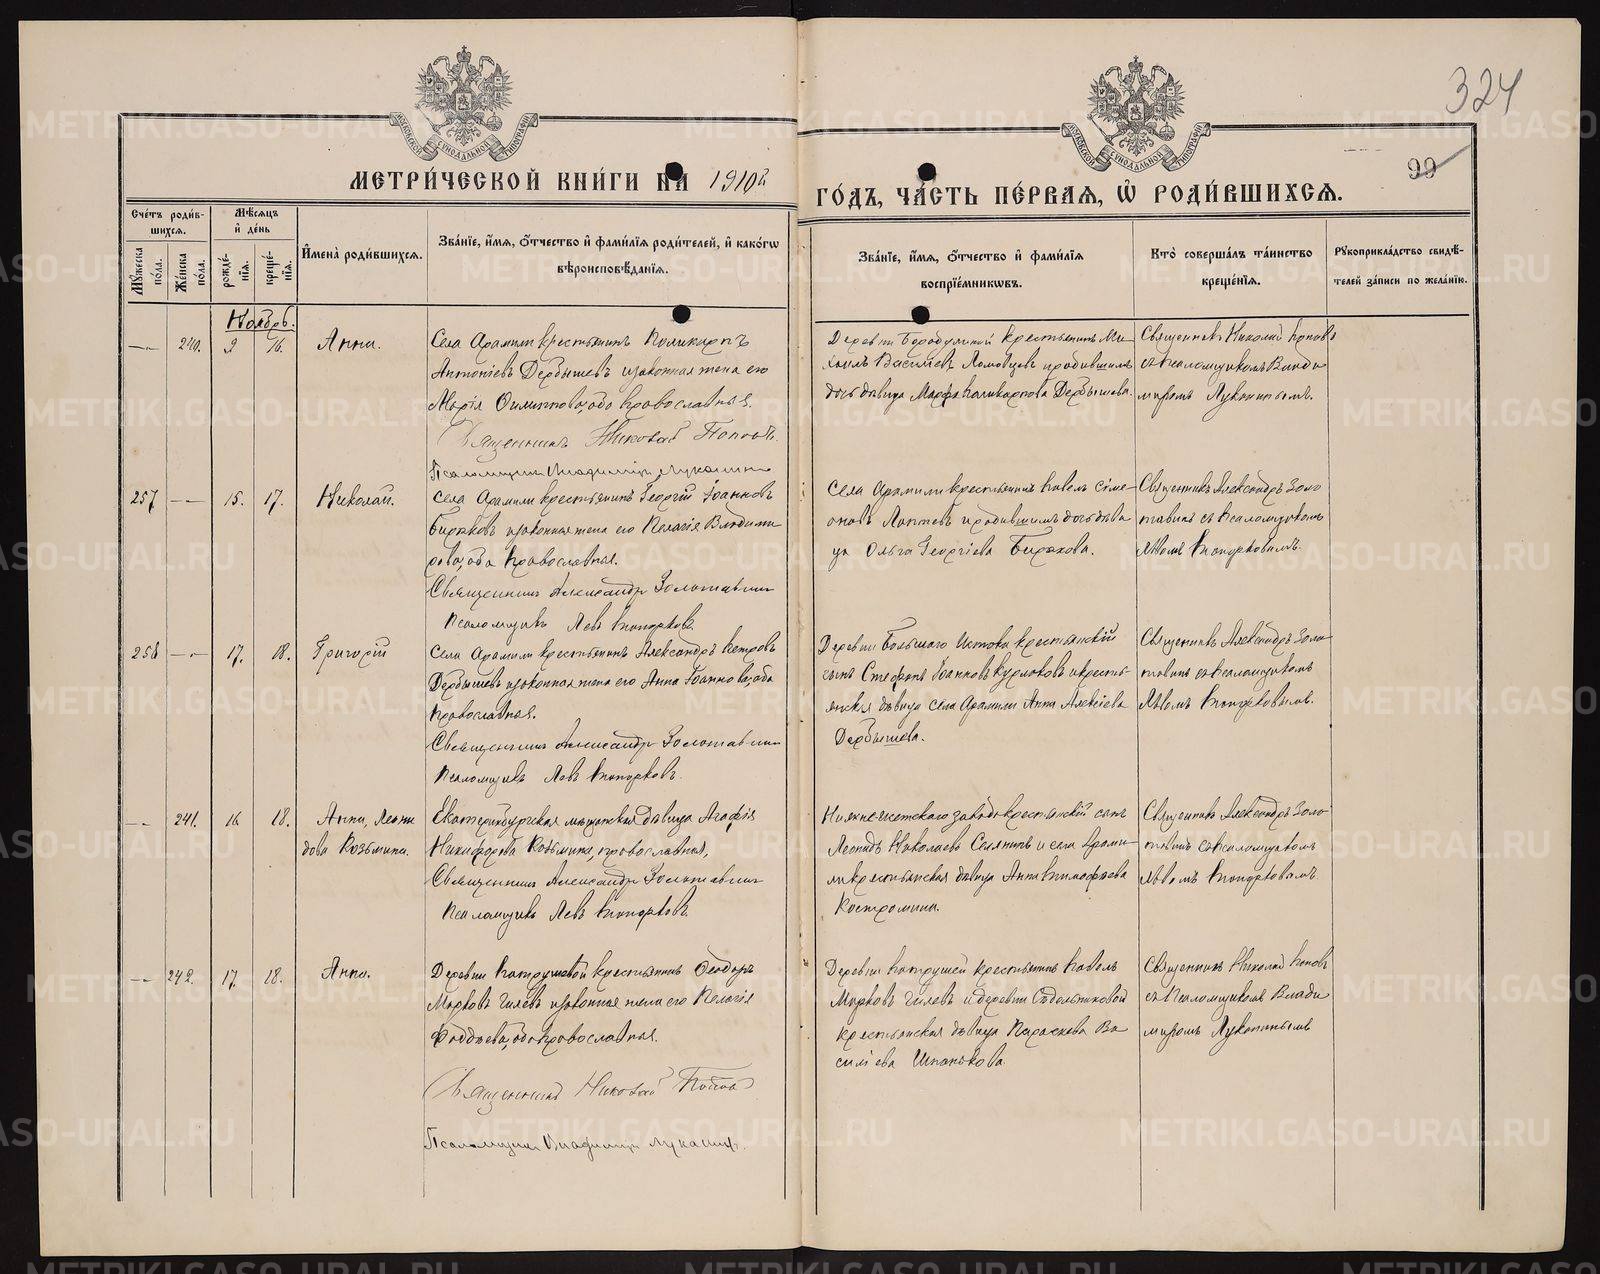 324
99
МЕТРИ́ЧЕСКОЙ КНИ́ГИ НА 1910 г.
ГОДЪ, ЧА́СТЬ ПЕ́РВАЯ, Ѡ РОДИ́ВШИХСЯ.
Сче́тъ роди́вшихся.
Му́жеска по́ла.
Же́нска по́ла.
Мѣ́сяцъ и́ де́нь
рожде́нія.
креще́нія.
И҆мена̀ роди́вшихся.
Зва́ніе, и́мя, ѻ́тчество и҆ фами́лія роди́телей, и҆ како́гѡ
вѣроисповѣ́данія.
Зва́ніе, и́мя, ѻ́тчество и҆ фами́лія
воспріе́мниковъ.
Кто̀ соверша́лъ та́инство
креще́нія.
Рꙋкоприкла́дство свидѣ́-
телей за́писи по жела́нію.
Ноябрь.
240. 9 16. Анна.
Села Арамили крестьянинъ Поликарпъ
Антоніевъ Дербышевъ и законная жена его
Марія Филиппова, оба православные.
Священникъ Николай Поповъ.
Псаломщикъ Владиміръ Луканинъ
крестьянинъ Ми-
хаилъ Василіевъ и родившимъ
дочь дѣвица Марѳа Поликарпова Дербышева.
Священникъ Николай Поповъ
съ псаломщикомъ Влади-
миромъ Луканинымъ.
257 15. 17. Николай.
Села Арамили крестьянинъ Георгій Іоанновъ
Бирюковъ и законная жена его Пелагія Владими-
рова, оба православные.
Священникъ Александръ Золотавинъ
Псаломщикъ Левъ
Села Арамили крестьянинъ Павелъ Симе-
оновъ Лаптевъ и родившимъ дочь дѣви-
ца Ольга Георгіева Бирюкова.
Священникъ Александръ Золо-
тавинъ съ псаломщикомъ
Львомъ
258 17. 18. Григорій
Села Арамили крестьянинъ Александръ Петровъ
Дербышевъ и законная жена его Анна Іоаннова, оба
православные.
Священникъ Александръ Золотавинъ
Псаломщикъ Левъ
Деревни Большаго Истока крестьянскій
сынъ Стефанъ Іоанновъ и кресть-
янская дѣвица села Арамили Анна Алексіева
Дербышева.
Священникъ Александръ Золо-
тавинъ съ псаломщикомъ
Львомъ
241. 16 18. Анна, Леони-
дова Козьмина.
Екатеринбургская мѣщанская дѣвица Агафія
Никифорова Козьмина, православная,
Священникъ Александръ Золотавинъ
Псаломщикъ Левъ
Нижне-Исетскаго завода крестьянскій сынъ
Леонидъ Николаевъ и села Арами-
ли крестьянская дѣвица Анна Тимофѣева
Костромина.
Священникъ Александръ Золо-
тавинъ съ псаломщикомъ
Львомъ
242. 17. 18. Анна.
Деревни Патрушевой крестьянинъ Ѳеодоръ
Марковъ Гилевъ и законная жена его Пелагія
Фаддѣева, оба православные.
Священникъ Николай Поповъ
Псаломщикъ Владиміръ Луканинъ.
Деревни Патрушевой крестьянинъ Павелъ
Марковъ Гилевъ и деревни Седельниковой
крестьянская дѣвица Параскева Ва-
силіева Шпанькова.
Священникъ Николай Поповъ
съ псаломщикомъ Влади-
миромъ Луканинымъ
METRIKI.GASO-URAL.RU